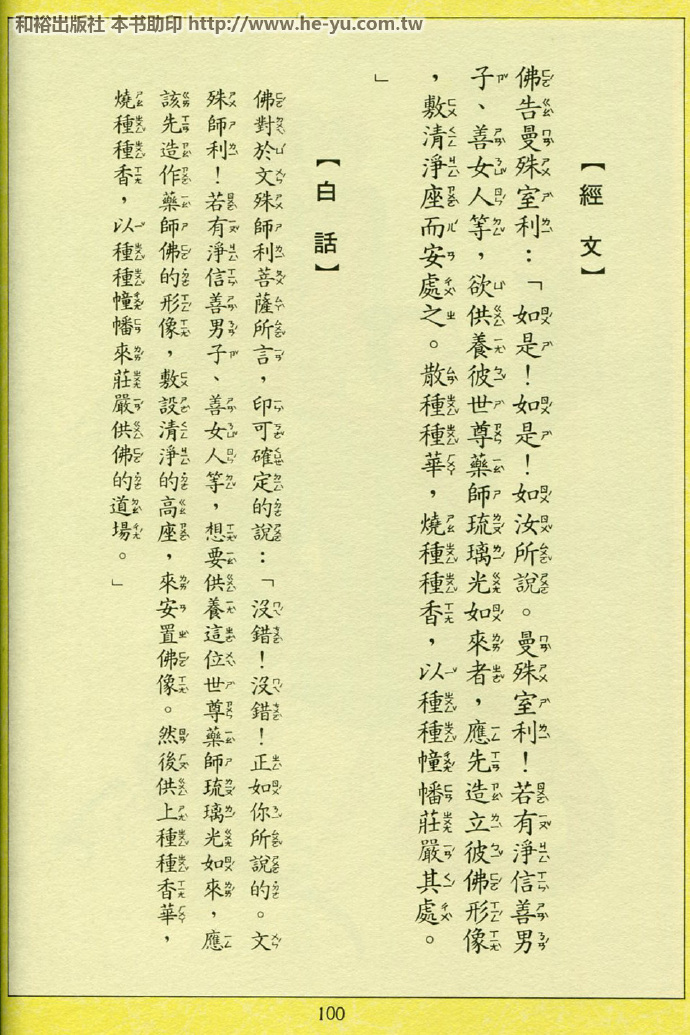 和裕出版社 本书助印 http://www.he-yu.com.tw
【經文】
佛告曼殊室利：「如是！如是！如汝所說。曼殊室利！若有淨信善男
子、善女人等，欲供養彼世尊藥師琉璃光如來者，應先造立彼佛形像
，敷清淨座而安處之。散種種華，燒種種香，以種種幢幡莊嚴其處。
」
【白話】
佛對於文殊師利菩薩所言，印可確定的說：「沒錯！沒錯！正如你所說的。文
殊師利！若有淨信善男子、善女人等，想要供養這位世尊藥師琉璃光如來，應
該先造作藥師佛的形像，敷設清淨的高座，來安置佛像。然後供上種種香華，
燒種種香，以種種幢幡來莊嚴供佛的道場。」
100